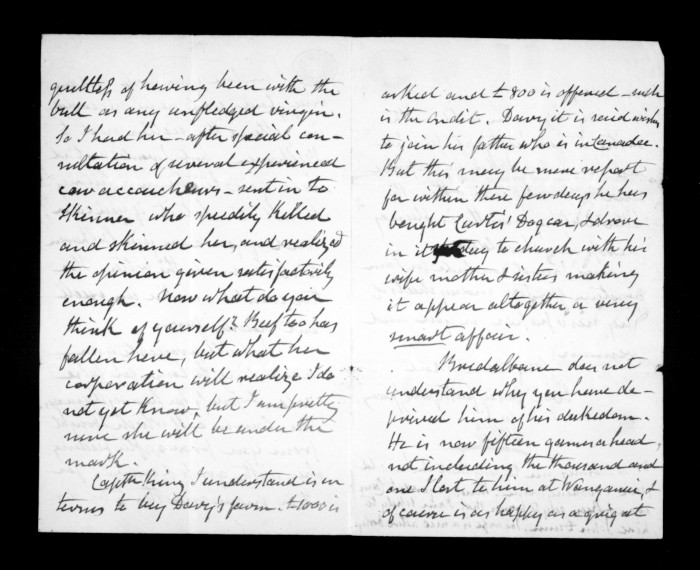 guiltless of having been with the
bull as any unfledged virgin.
So I had her – after special con-
sultation of several experienced
cow accoucheurs – sent in to
Skinner who speedily killed
and skinned her, and realized
the opinion given satisfactorily
enough. Now what do you
think of yourself? Beef too has
fallen here, but what her
corporation will realize I do
not yet know, but I am pretty
sure she will be under the
mark.
Captn King I understand is in
terms to buy Davy's farm. £1000 is
asked and £800 is offered – such
is the on dit. Davy it is said wishes
to join his father who is in Canada.
But this may be mere report
for within these few days he has
bought Curtis' Dog car, & drove
in it to church with his
wife mother & sisters making
it appear altogether a very
smart affair.
Breadalbane does not
understand why you have de-
prived him of his dukedom.
He is now fifteen games ahead,
not including the thousand and
one I lost to him at Wanganui, &
of course is as happy as a pig at